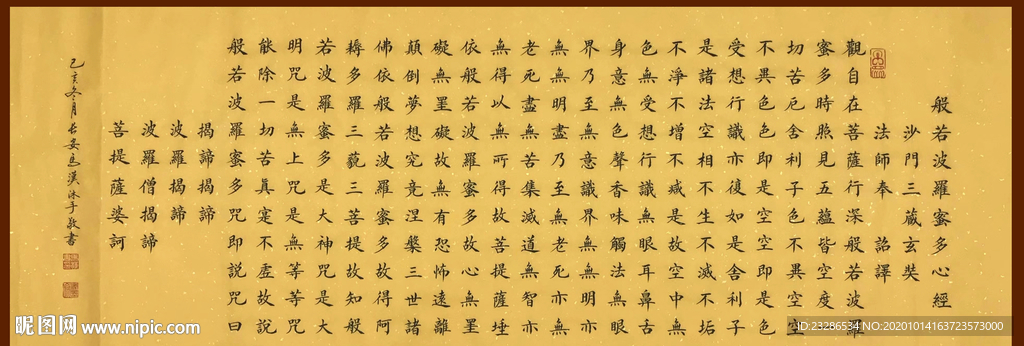 般若波羅蜜多心 經
沙門三藏玄奘
法師奉 詔譯
觀自在菩薩行深般若波羅
蜜多時照見五蘊皆空度一
切苦厄舍利子色不異空空
不異色色即是空空即是色
受想行識亦復如是舍利子
是諸法空相不生不滅不垢
不淨不增不減是故空中無
色無受想行識無眼耳鼻舌
身意無色聲香味觸法無眼
界乃至無意識界無無明亦
無無明盡乃至無老死亦無
老死盡無苦集滅道無智亦
無得以無所得故菩提薩埵
依般若波羅蜜多故心無罣
礙無罣礙故無有恐怖遠離
顛倒夢想究竟涅槃三世諸
佛依般若波羅蜜多故得阿
耨多羅三藐三菩提故知般
若波羅蜜多是大神咒是大
明咒是無上咒是無等等咒
能除一切苦真實不虛故說
般若波羅蜜多咒即說咒曰
揭諦揭諦
波羅揭諦
波羅僧揭諦
菩提薩婆訶
己亥冬月 敬書
昵图网 www.nipic.com
ID:23286534 NO:20201014163723573000